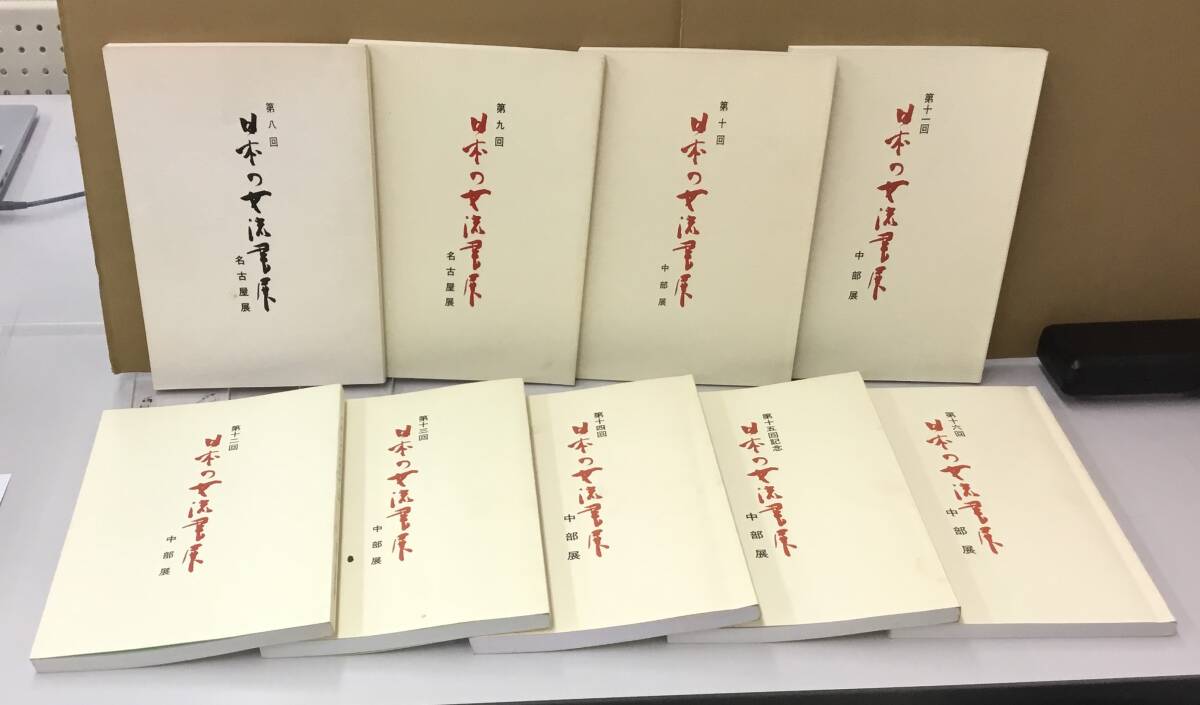 第八回
日本の女流書展
名古屋展
第九回
日本の女流書展
名古屋展
第十回
日本の女流書展
中部展
第十一回
日本の女流書展
中部展
第十二回
日本の女流書展
中部展
第十三回
日本の女流書展
中部展
第十四回
日本の女流書展
中部展
第十五回記念
日本の女流書展
中部展
第十六回
日本の女流書展
中部展